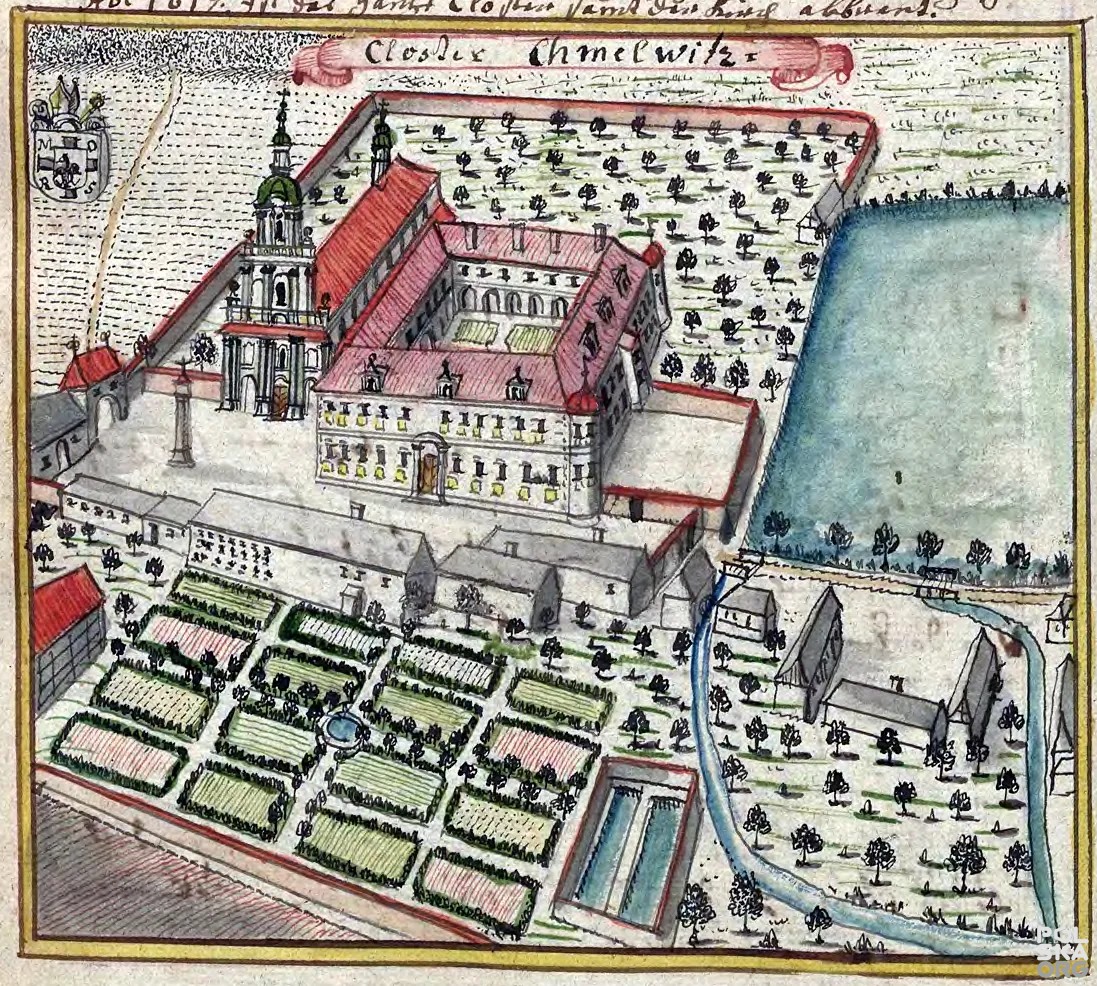 Ao: 1617. Ist das gantze Closter samt der Kirch abbrant.
Closter Chmelwitz=
M D
R S
POL
SKA
ORG